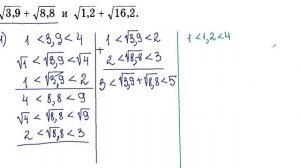 √3,9 + √8,8 и √1,2 + √16,2.
1) 1 < 3,9 < 4
√1 < √3,9 < √4
1 < √3,9 < 2
4 < 8,8 < 9
√4 < √8,8 < √9
2 < √8,8 < 3
1 < √3,9 < 2
+
2 < √8,8 < 3
3 < √3,9 + √8,8 < 5
1 < 1,2 < 4